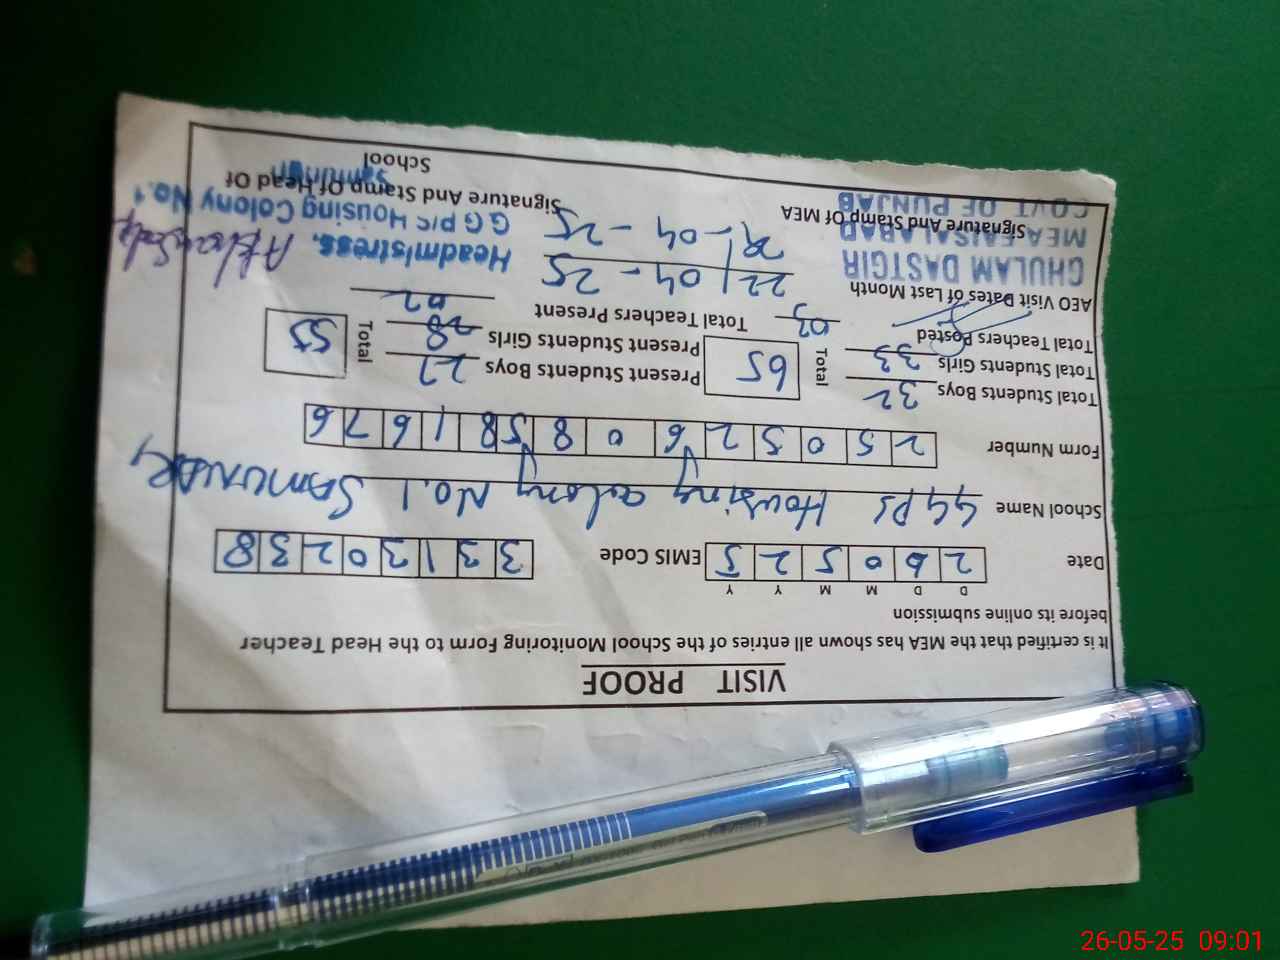 VISIT PROOF
It is certified that the MEA has shown all entries of the School Monitoring Form to the Head Teacher
before its online submission
D D M M Y Y
Date 2 6 0 5 2 5 EMIS Code 3 3 1 3 0 2 3 8
School Name GGPS Housing colony No.1 SAMUNDRY
Form Number 2 5 0 5 2 6 0 8 5 8 1 6 7 6
Total Students Boys 32 Total 65 Present Students Boys 27 Total 55
Total Students Girls 33 Present Students Girls 28
Total Teachers Posted 03 Total Teachers Present 02
AEO Visit Dates of Last Month 22-04-25
GHULAM DASTGIR Headmistress.
MEA FAISALABAD -04-25 G G P/S Housing Colony No.1
GOVT OF PUNJAB
Signature And Stamp Of MEA Signature And Stamp Of Head Of
School
26-05-25 09:01